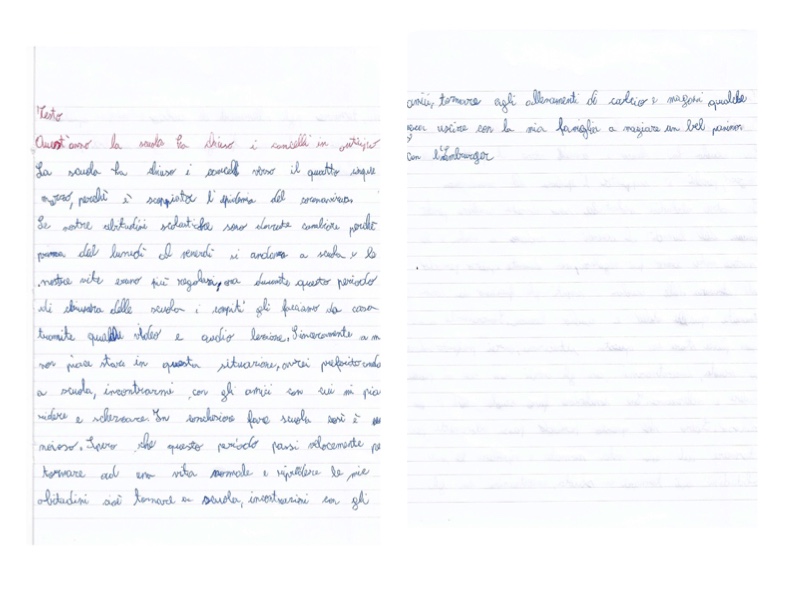 Testo
Quest'anno la scuola ha chiuso i cancelli in anticipo
La scuola ha chiuso i cancelli verso il quattro cinque
marzo, perché è scoppiato l'epidemia del coronavirus
Le nostre abitudini scolastiche sono dovute cambiare perché
prima dal lunedì al venerdì si andava a scuola e le
nostre vite erano più regolari, ora durante questo periodo
di chiusura delle scuola i compiti gli facciamo da casa
tramite qualche video e audio lezione. Sinceramente a m
non piace stare in questa situazione, avrei preferito
a scuola, incontrarmi con gli amici con cui mi pia
ridere e scherzare. In conclusione fare scuola così è
noioso. Spero che questo periodo passi velocemente pe
tornare ad una vita normale e riprendere le mie
abitudini così tornare a scuola, incontrarmi con gli
amici, tornare agli allenamenti di calcio e magari qualche
uscire con la mia famiglia a mangiare un bel panino
con l'Hamburger